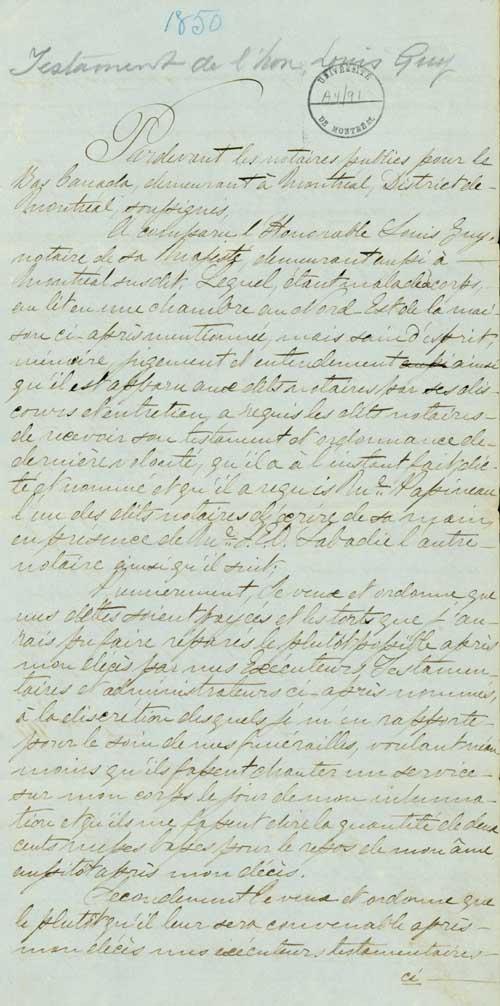 1850
Testament de l'hon. Louis Guy
UNIVERSITÉ
A4/91
DE MONTRÉAL
Pardevant les notaires publics pour le
Bas Canada, demeurant à Montréal, District de
Montréal, soussignés,
A comparu l'Honorable Louis Guy,
notaire de sa Majesté, demeurant aussi à
Montréal susdit. Lequel, étant malade de corps,
au lit en une chambre au Nord Est de la mai
son ci-après mentionnée, mais sain d'esprit
mémoire, jugement et entendement aussi ainsi
qu'il est apparu aux dits notaires par ses dis-
cours et entretien, a requis les dits notaires
de recevoir son testament et ordonnance de
dernière volonté, qu'il a à l'instant fait, dic
té et nommé et qu'il a requis Mr. Papineau
l'un des dits notaires d'écrire de sa main
en présence de Mr. Labadie l'autre
notaire ainsi qu'il suit.
Premièrement, Je veux et ordonne que
mes dettes soient payées et les torts que j'au-
rais pu faire réparés le plutôt possible après
mon décès par mes Exécuteurs Testamen-
taires et administrateurs ci-après nommés
à la discrétion desquels je m'en rapporte
pour le soin de mes funérailles, voulant néan
moins qu'ils fassent chanter un service
sur mon corps le jour de mon inhuma-
tion et qu'ils me fassent dire la quantité de deux
cents messes basses pour le repos de mon âme
aussitôt après mon décès.
Secondement Je veux et ordonne que
le plutôt qu'il leur sera convenable après
mon décès mes exécuteurs testamentaires
ci